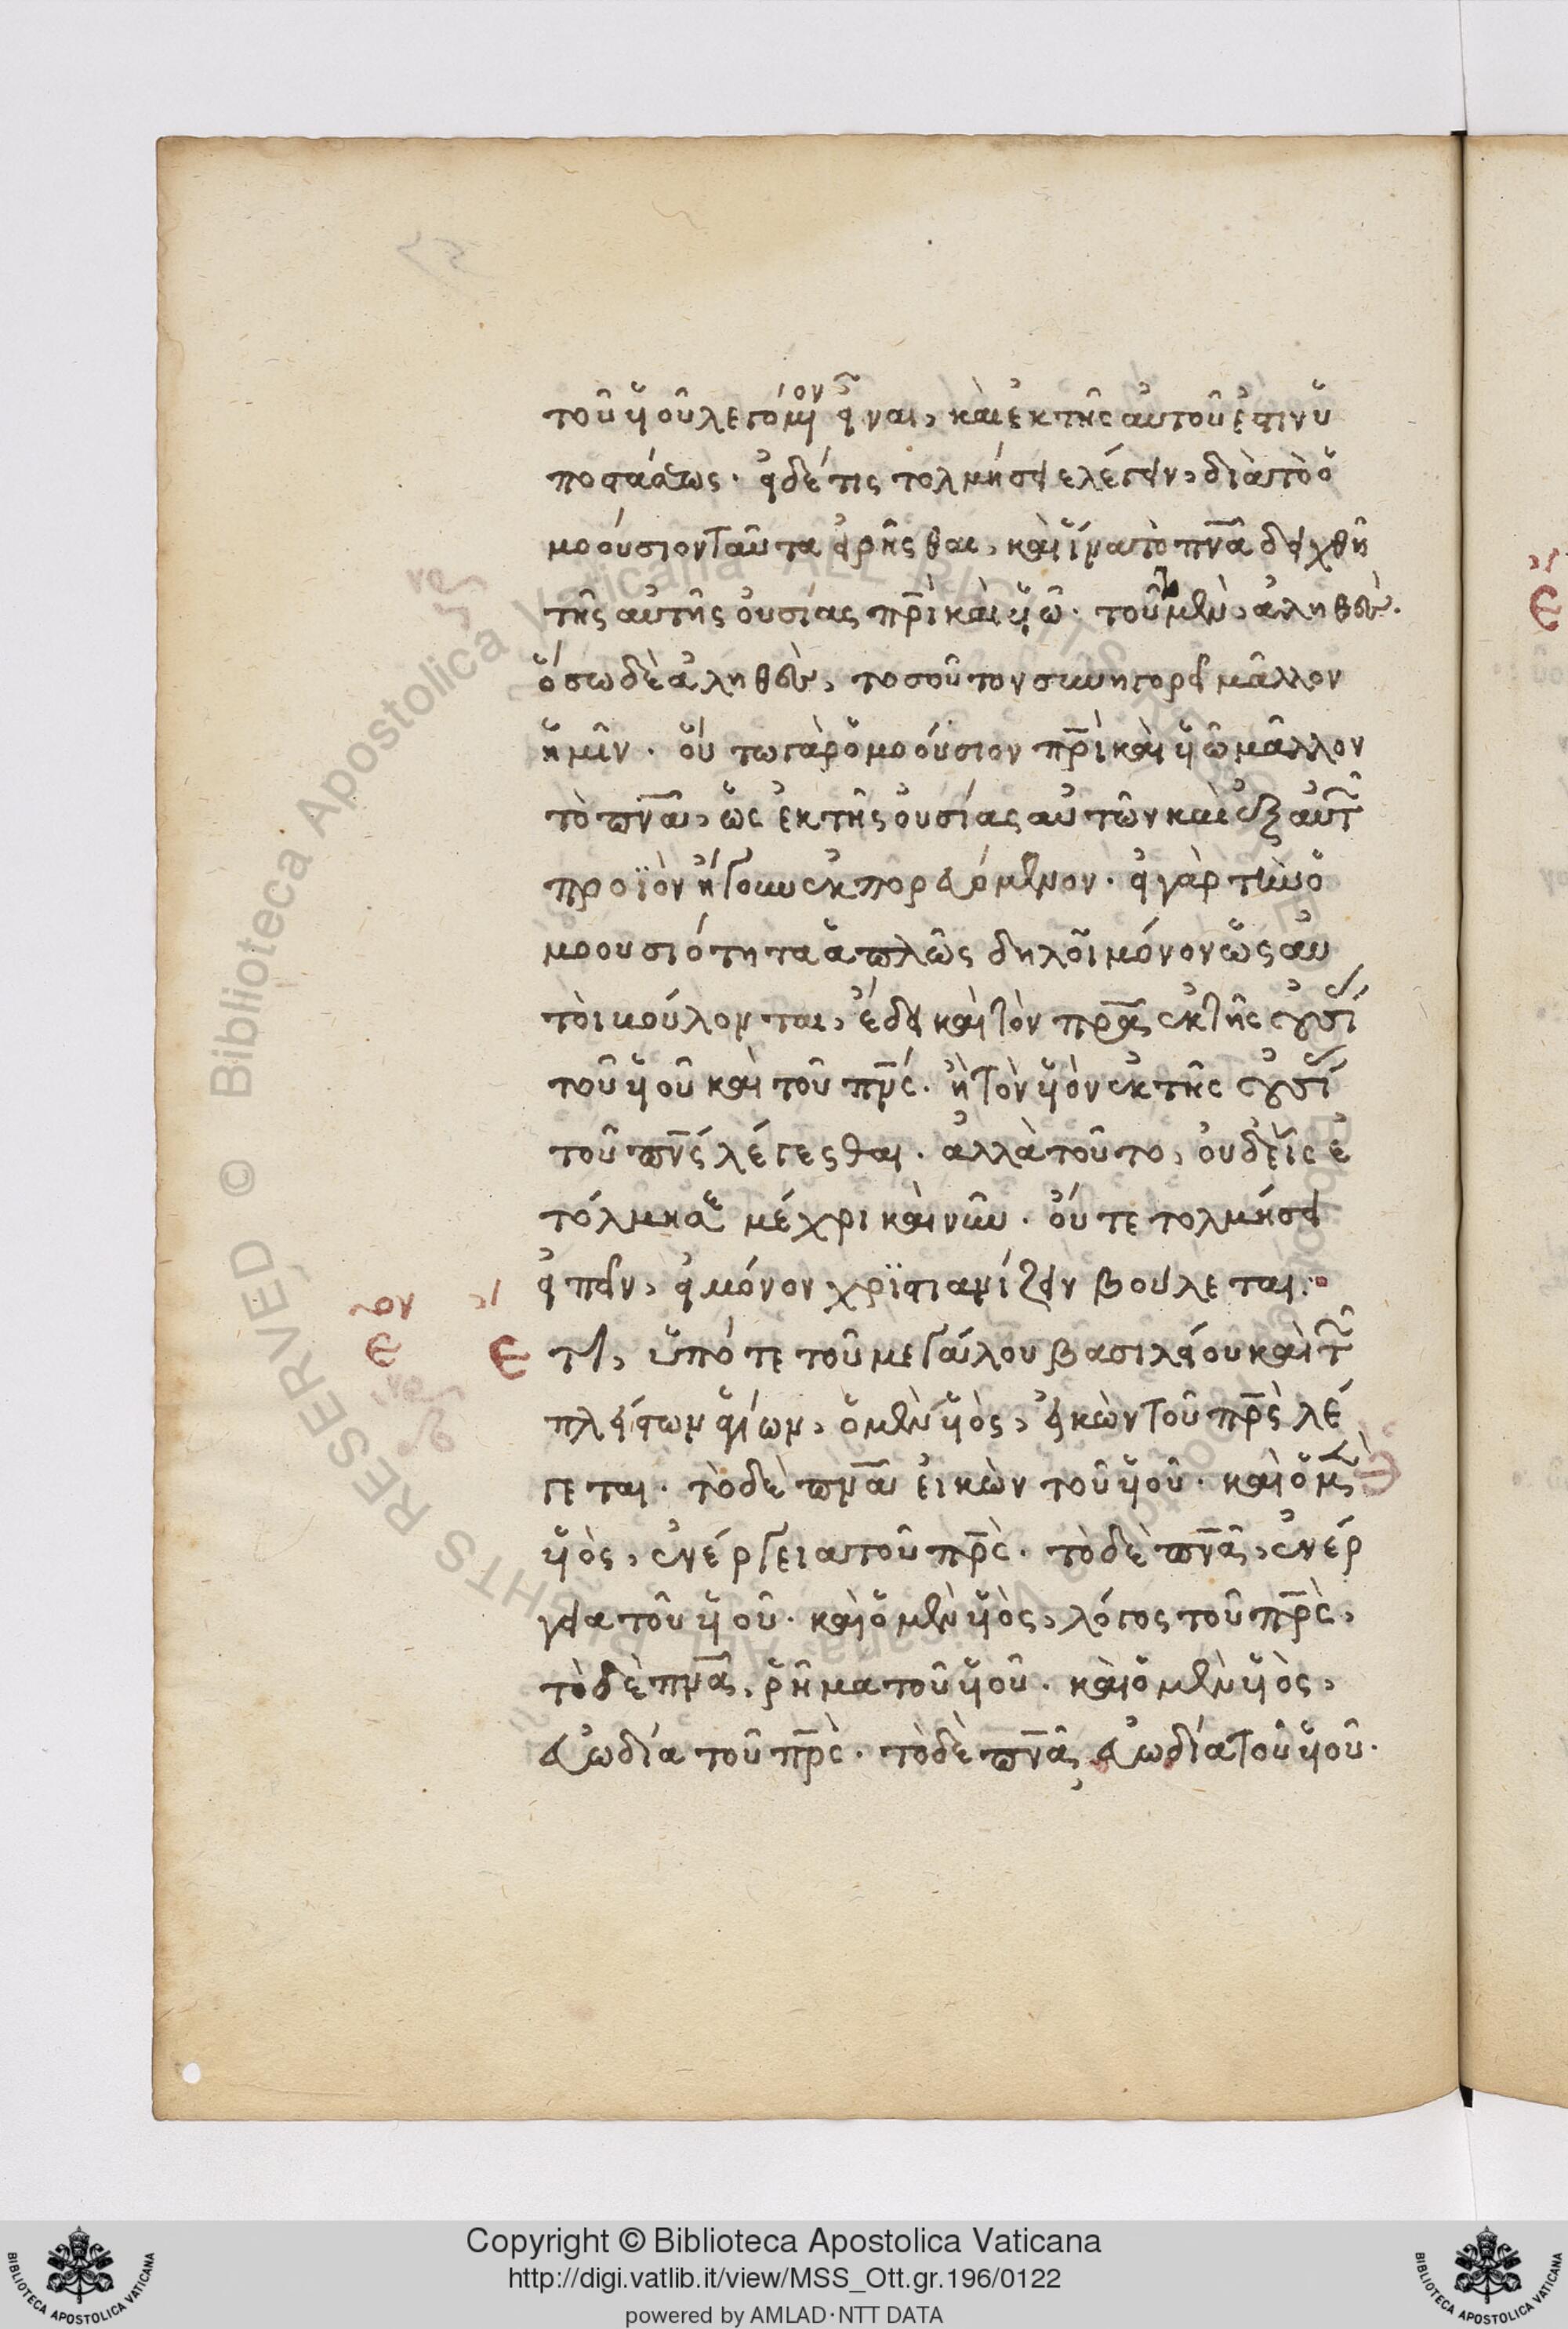 τοῦ ὑϊοῦ λεγόμιον εἶναι, καὶ ἐκ τῆς αὐτοῦ ἐστιν ὑ
ποστάσεως. εἰ δέ τις τολμήσει λέγειν, διὰ τὸ ὁ
μοούσιον ταῦτα εἰρῆσθαι, καὶ ἵνα τὸ πν̅α δειχθῆ
τῆς αὐτῆς οὐσίας πρ̅ὶ καὶ ὑϊῶ. τοῦτο μὲν, ἀληθὲς.
ὅσω δὲ ἀληθὲς, τοσοῦτον συνηγορεῖ μᾶλλον
ἡμῖν. οὕτω γὰρ ὁμοούσιον πρ̅ὶ καὶ ὑϊῶ μᾶλλον
τὸ πν̅α, ὡς ἐκ τῆς οὐσίας αὐτῶν καὶ ἐξ αὐτῶν
προϊὸν ἤγουν ἐκπορευόμενον. εἰ γὰρ τὴν ὁ
μοουσιότητα ἁπλῶς δηλοῖ μόνον ὡς αὐ
τοὶ βούλονται, ἔδει καὶ τὸν πρ̅α ἐκ τῆς οὐσί
τοῦ ὑϊοῦ καὶ τοῦ πν̅ς. ἢ τὸν ὑϊὸν ἐκ τῆς οὐσί
τοῦ πν̅ς λέγεσθαι. ἀλλὰ τοῦτο, οὐδεὶς ἐ
τόλμησε μέχρι καὶ νῦν. οὔτε τολμήσει
εἰπεῖν, εἰ μόνον χρϊστιανίζειν βούλεται.
ον ε Ἔτι, ὑπό τε τοῦ μεγάλου βασιλείου καὶ τῶν
πλείστων ἁγίων, ὁ μὲν ὑϊὸς, εἰκὼν τοῦ πρ̅ς λέ
γεται. τὸ δὲ πν̅α εἰκὼν τοῦ ὑϊοῦ. καὶ ὁ μὲν
ὑϊὸς, ἐνέργεια τοῦ πρ̅ς. τὸ δὲ πν̅α, ἐνέρ
γεια τοῦ ὑϊοῦ. καὶ ὁ μὲν ὑϊὸς, λόγος τοῦ πρ̅ς,
τὸ δὲ πν̅α, ῥῆμα τοῦ ὑϊοῦ. καὶ ὁ μὲν ὑϊὸς,
εὐωδία τοῦ πρ̅ς. τὸ δὲ πν̅α, εὐωδία τοῦ ὑϊοῦ.
Biblioteca Apostolica Vaticana ALL RIGHTS RESERVED ©
Copyright © Biblioteca Apostolica Vaticana
http://digi.vatlib.it/view/MSS_Ott.gr.196/0122
powered by AMLAD·NTT DATA
BIBLIOTECA APOSTOLICA VATICANA
BIBLIOTECA APOSTOLICA VATICANA